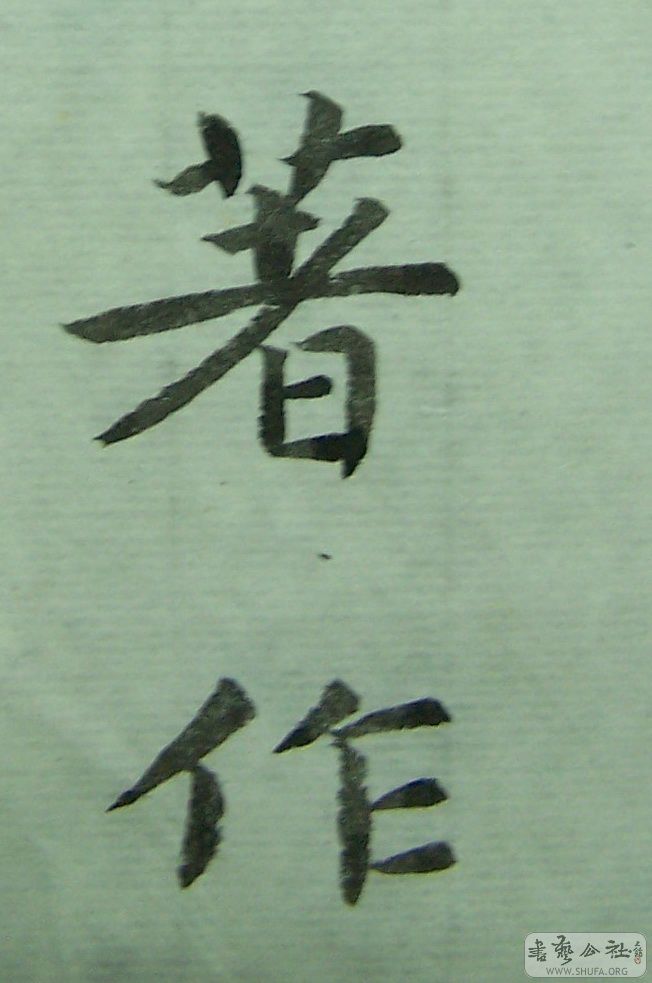 著作
書藝公社
WWW.SHUFA.ORG